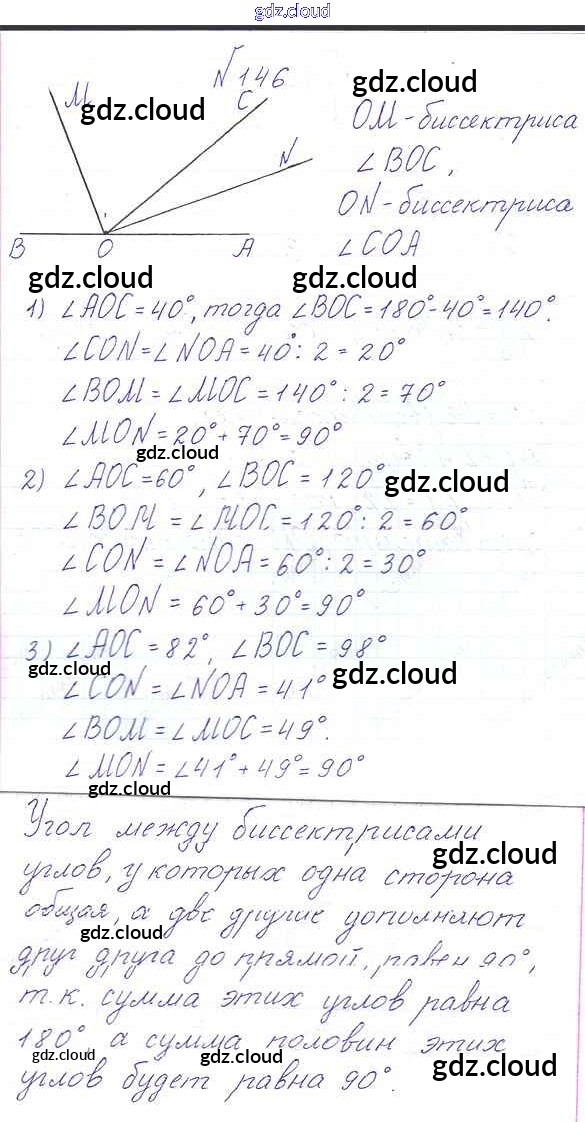 gdz.cloud
№146
M
gdz.cloud
C
gdz.cloud
N
B
O
A
OM-биссектриса
∠BOC,
ON-биссектриса
∠COA
gdz.cloud
gdz.cloud
1) ∠AOC=40°, тогда ∠BOC=180°-40°=140°.
∠CON=∠NOA=40°:2=20°
∠BOM=∠MOC=140°:2=70°
∠MON=20°+70°=90°
gdz.cloud
2) ∠AOC=60°, ∠BOC=120°
gdz.cloud
∠BOM=∠MOC=120°:2=60°
∠CON=∠NOA=60°:2=30°
∠MON=60°+30°=90°
3) ∠AOC=82°, ∠BOC=98°
gdz.cloud
gdz.cloud
∠CON=∠NOA=41°
∠BOM=∠MOC=49°.
∠MON=∠41°+49°=90°
gdz.cloud
Угол между биссектрисами
gdz.cloud
углов, у которых одна сторона
общая, а две другие дополняют
gdz.cloud
друг друга до прямой, равен 90°,
т.к. сумма этих углов равна
180° а сумма половин этих
gdz.cloud
gdz.cloud
gdz.cloud
углов будет равна 90°.